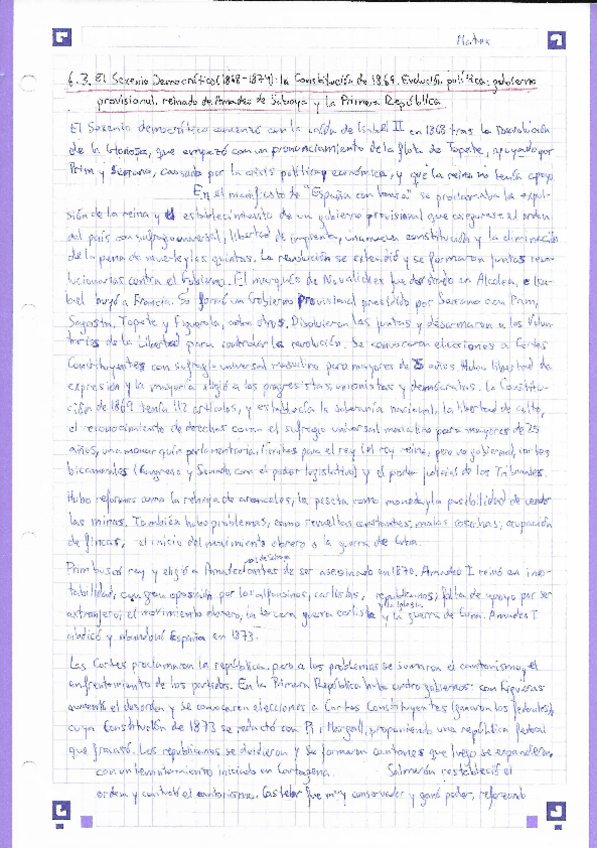 Mates
6.3. El Sexenio Democrático (1868-1874): la Constitución de 1869. Evolución política: gobierno
provisional, reinado de Amadeo de Saboya y la Primera República
El Sexenio democrático comenzó con la caída de Isabel II en 1868 tras la Revolución
de la Gloriosa, que empezó con un pronunciamiento de la flota de Topete, apoyado por
Prim y Serrano, causado por la crisis política y económica, y que la reina no tenía apoyo.
En el manifiesto de "España con honra" se proclamaba la expul-
sión de la reina y el establecimiento de un gobierno provisional que asegurase el orden
del país con sufragio universal, libertad de imprenta, una nueva constitución y la eliminación
de la pena de muerte y las quintas. La revolución se extendió y se formaron juntas revo-
lucionarias contra el Gobierno. El marqués de Novaliches fue derrotado en Alcolea, e Isa-
bel huyó a Francia. Se formó un Gobierno Provisional presidido por Serrano con Prim,
Sagasta, Topete y Figuerola, entre otros. Disolvieron las juntas y desarmaron a los Volun-
tarios de la Libertad para controlar la revolución. Se convocaron elecciones a Cortes
Constituyentes con sufragio universal masculino para mayores de 25 años. Hubo libertad de
expresión y la mayoría eligió a los progresistas, unionistas y demócratas. La Constitu-
ción de 1869 tenía 112 artículos, y establecía la soberanía nacional, la libertad de culto,
el reconocimiento de derechos como el sufragio universal masculino para mayores de 25
años, una monarquía parlamentaria, límites para el rey (el rey reina, pero no gobierna), cortes
bicamerales (Congreso y Senado, con el poder legislativo) y el poder judicial de los Tribunales.
Hubo reformas como la rebaja de aranceles, la peseta como moneda y la posibilidad de vender
las minas. También hubo problemas, como revueltas constantes, malas cosechas, ocupación
de fincas, el inicio del movimiento obrero o la guerra de Cuba.
Prim buscó rey y eligió a Amadeo de Saboya antes de ser asesinado en 1870. Amadeo I reinó en ines-
tabilidad, con gran oposición por los alfonsinos, carlistas, republicanos y la Iglesia; falta de apoyo por ser
extranjero; el movimiento obrero, la tercera guerra carlista y la guerra de Cuba. Amadeo I
abdicó y abandonó España en 1873.
Las Cortes proclamaron la república, pero a los problemas se sumaron el cantonismo y el
enfrentamiento de los partidos. En la Primera República hubo cuatro gobiernos: con Figueras
aumentó el desorden y se convocaron elecciones a Cortes Constituyentes (ganaron los federales),
cuya Constitución de 1873 se redactó con Pi i Margall, proponiendo una república federal
que fracasó. Los republicanos se dividieron y se formaron cantones que luego se expandieron,
con un levantamiento iniciado en Cartagena. Salmerón restableció el
orden y controló el cantonismo. Castelar fue muy conservador y ganó poder, reforzando